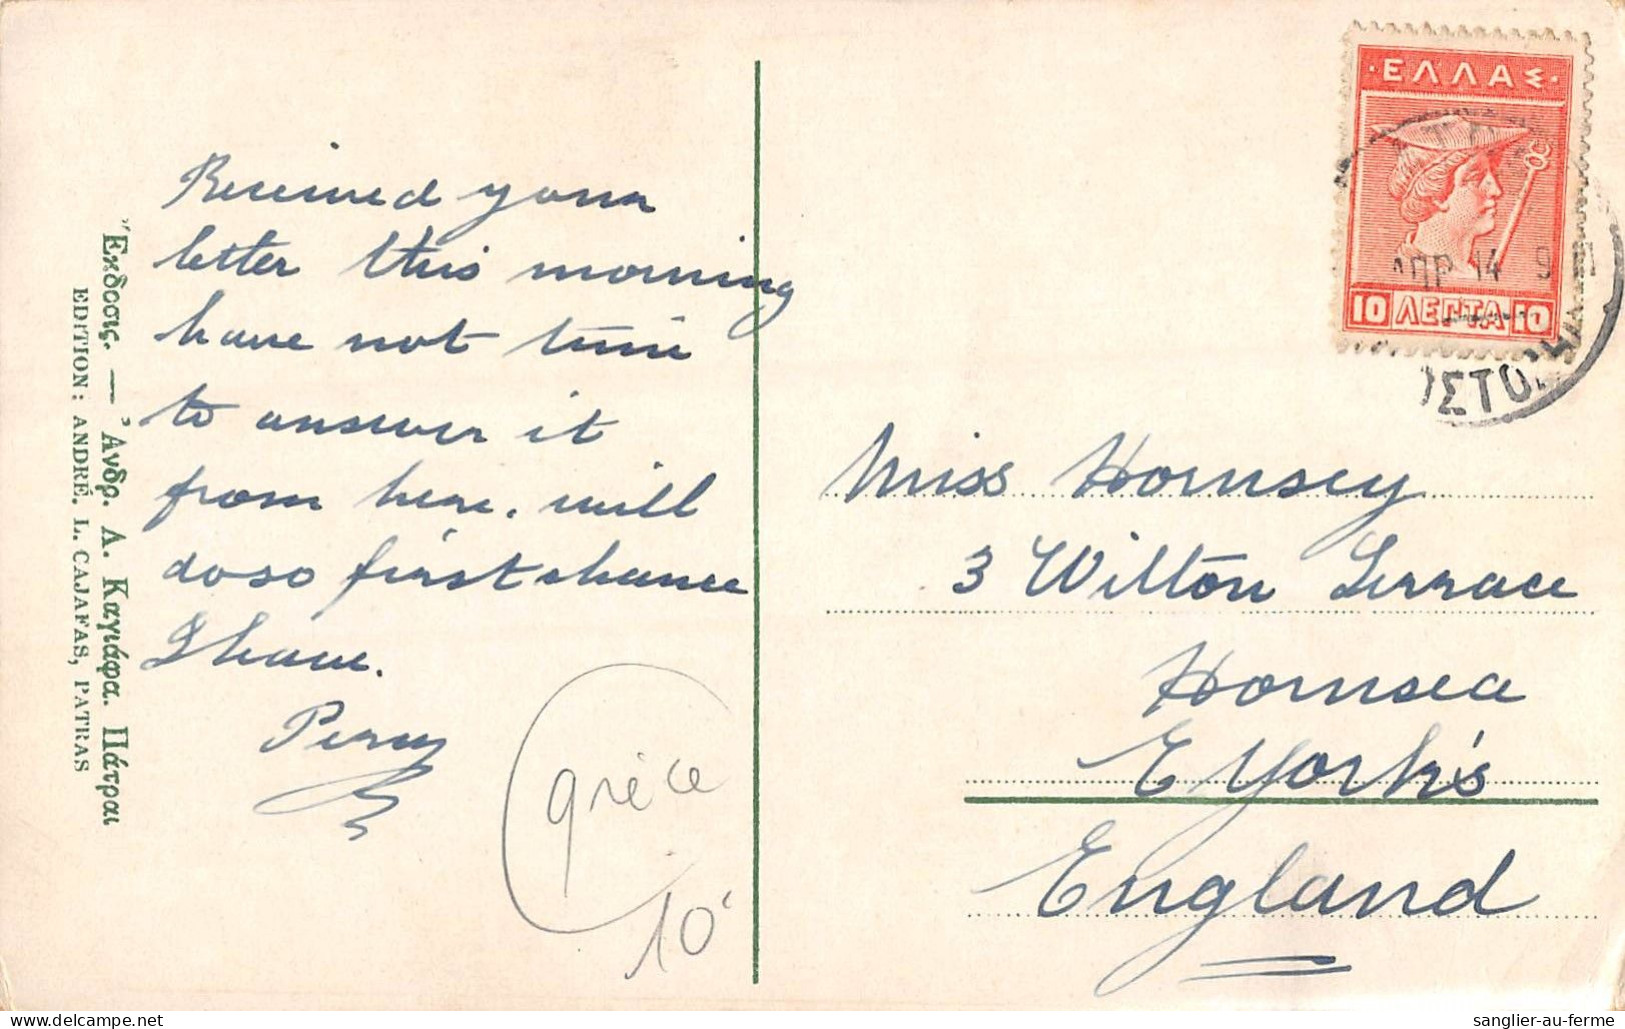 Received your
letter this morning
have not time
to answer it
from here, will
do so first chance
I have.
Percy
Ἔκδοσις. — Ἀνδρ. Λ. Καγιάφα. Πάτραι
EDITION: ANDRÉ. L. CAJAFAS, PATRAS
grèce
10
·ΕΛΛΑΣ·
10 ΛΕΠΤΑ 10
ΑΠΡ 14 9
ΟΣΤΟΛ
Miss Hornsey
3 Wilton Terrace
Hornsea
E York's
England
sanglier-au-ferme